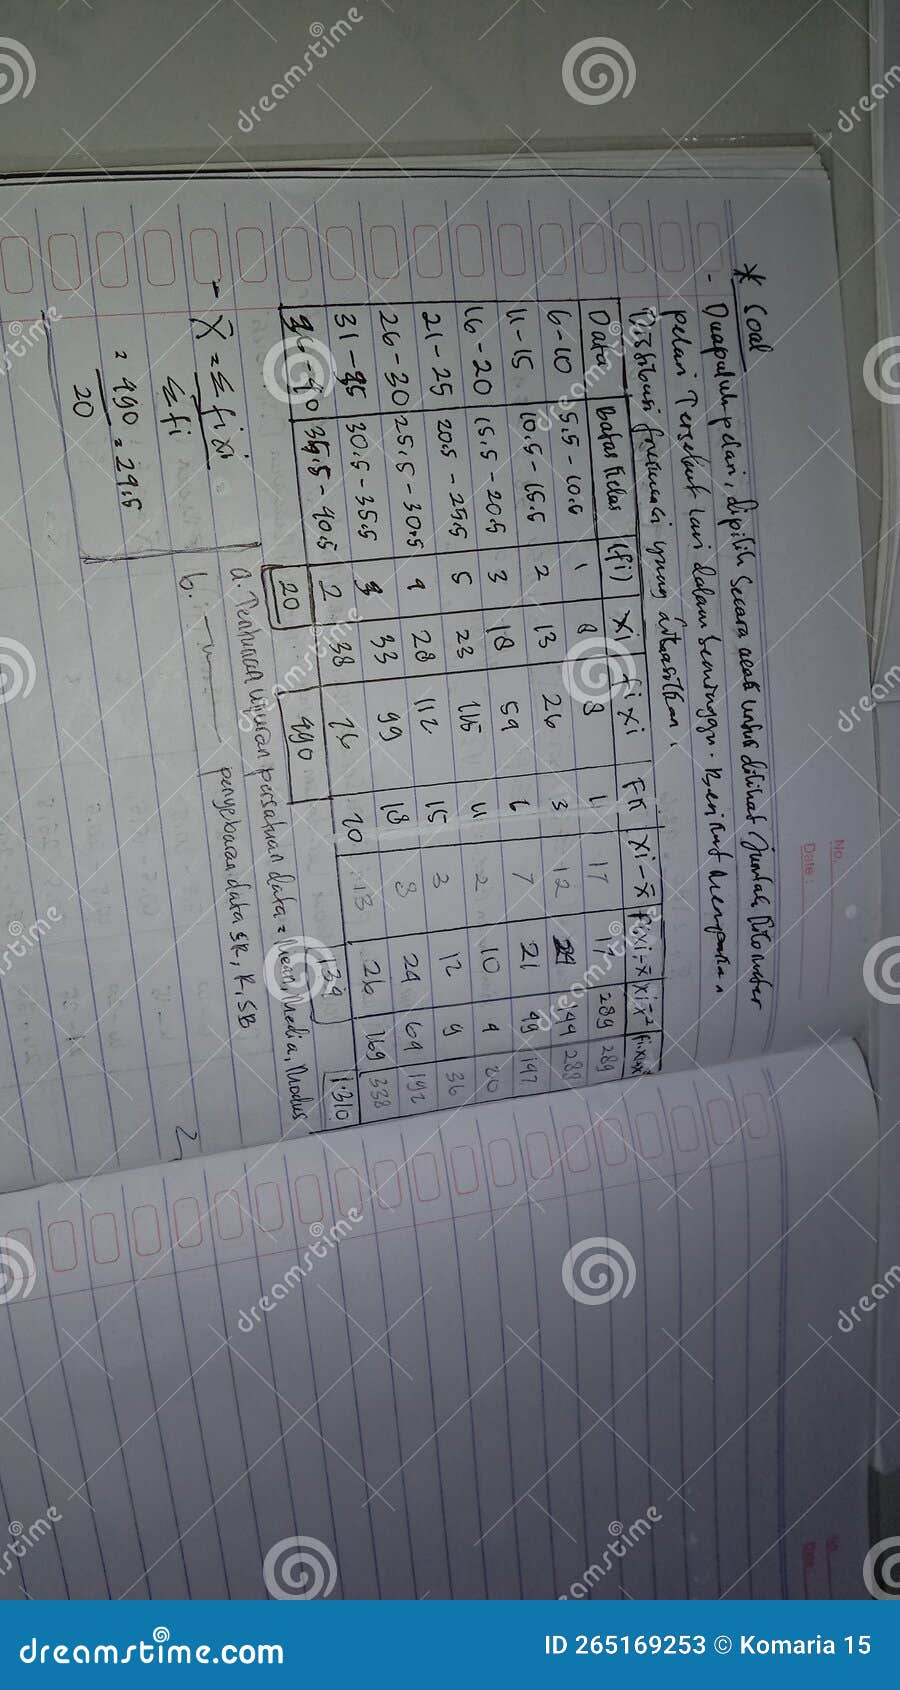 No.
Date :
* Soal
- Duapuluh pelari, dipilih secara acak untuk dilihat jumlah kilometer
pelari tersebut lari dalam seminggu. Berikut merupakan
Distribusi frekuensi yang dihasilkan.
Data Batas Kelas (fi) Xi fi Xi FK Xi-x̄ fi|Xi-x̄| Xi-x̄²
6-10 5.5-10.5 1 8 8 1 17 17 289 289
11-15 10.5-15.5 2 13 26 3 12 24 144 288
16-20 15.5-20.5 3 18 54 6 7 21 49 147
21-25 20.5-25.5 5 23 115 11 2 10 4 20
26-30 25.5-30.5 4 28 112 15 3 12 9 36
31-35 30.5-35.5 3 33 99 18 8 24 64 192
36-40 35.5-40.5 2 38 76 20 13 26 169 338
20 490 134 1.310
a. Tentukan ukuran pemusatan data = Mean, Media, Modus
b. penyebaran data SR, R, SB
- X̄ = Σ fi xi
Σ fi
= 490 = 24.5
20
2
dreamstime
dreamstime.com
ID 265169253 © Komaria 15